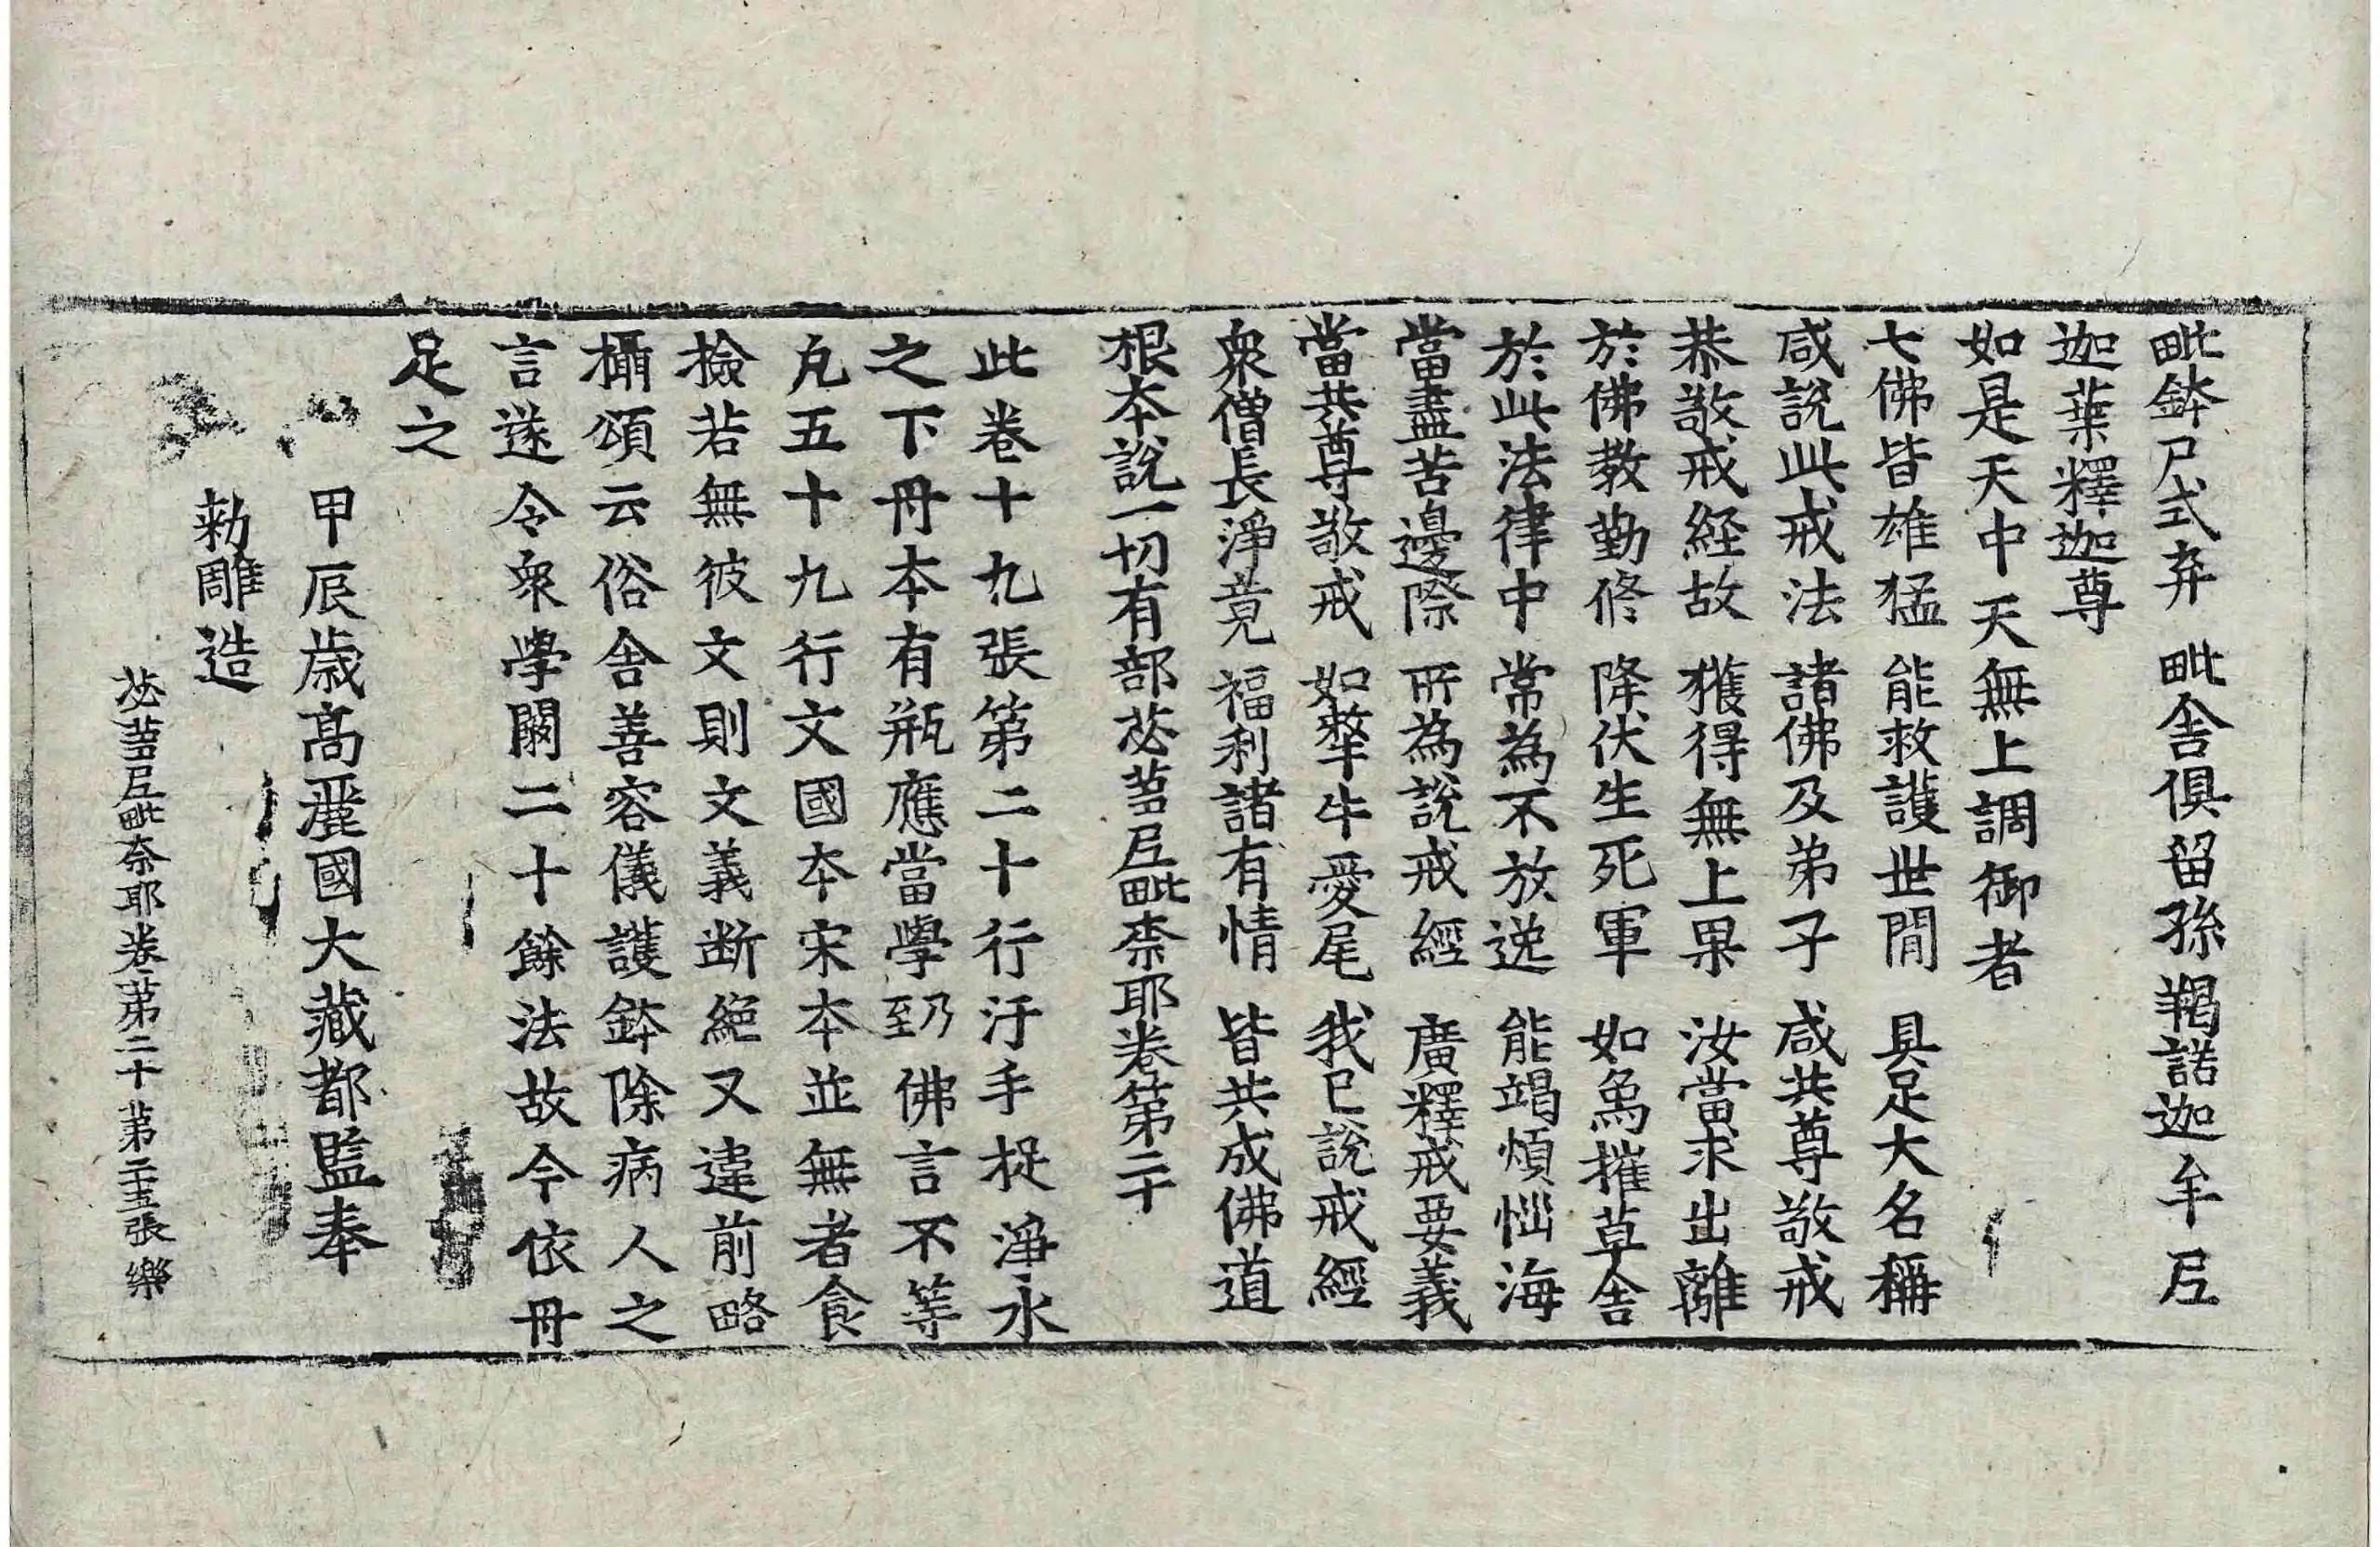 毗鉢尸式弃 毗舍俱留孫 羯諾迦牟尼
迦葉釋迦尊
如是天中天無上調御者
七佛皆雄猛 能救護世間 具足大名稱
咸說此戒法 諸佛及弟子 咸共尊敬戒
恭敬戒経故 獲得無上果 汝當求出離
於佛教勤修 降伏生死軍 如爲摧草舍
於此法律中 常為不放逸 能竭煩惱海
當盡苦邊際 所為說戒經 廣釋戒要義
當共尊敬戒 如犛牛愛尾 我已說戒經
衆僧長淨竟 福利諸有情 皆共成佛道
根本說一切有部苾蒭尼毗奈耶卷第二十
此卷十九張第二十行汙手捉淨水
之下丹本有瓶應當學乃至佛言不等
凡五十九行文國本宋本並無者食
撿若無彼文則文義断絕又違前略
攝頌云俗舍善容儀護鉢除病人之
言遂令衆學闕二十餘法故今依丹
足之
甲辰歲高麗國大藏都監奉
勅雕造
苾蒭尼毗奈耶卷第二十 第二十五張 樂